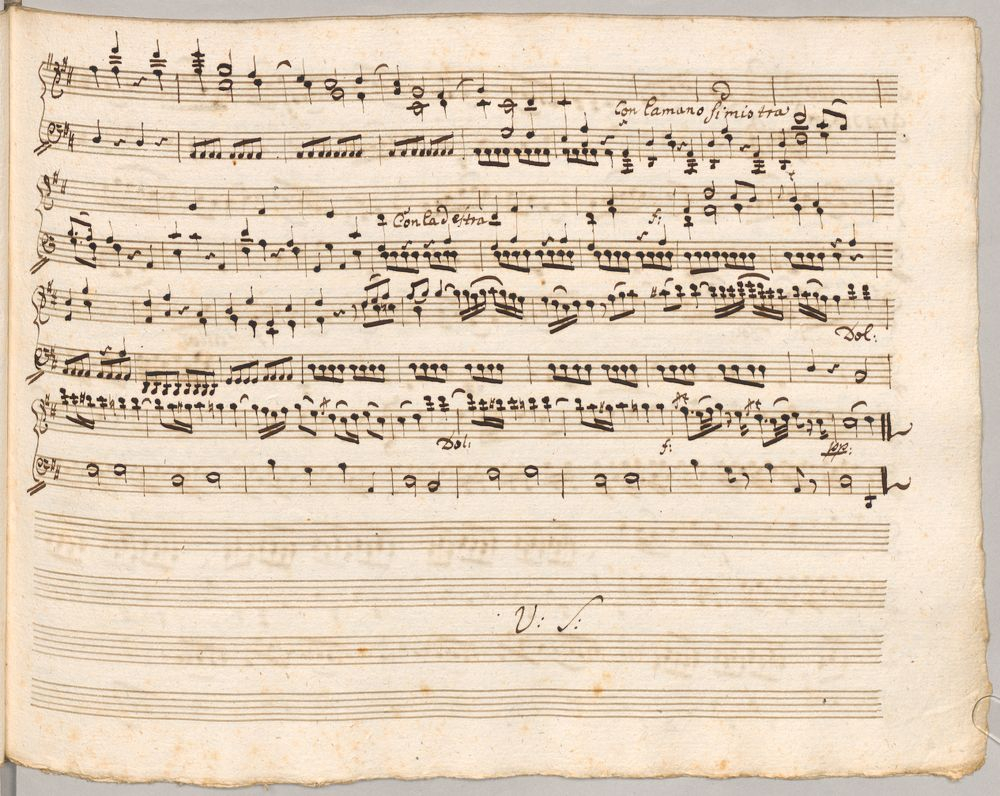 Con la mano simistra
Con la destra f:
Dol:
Dol: f: pp:
V: S: